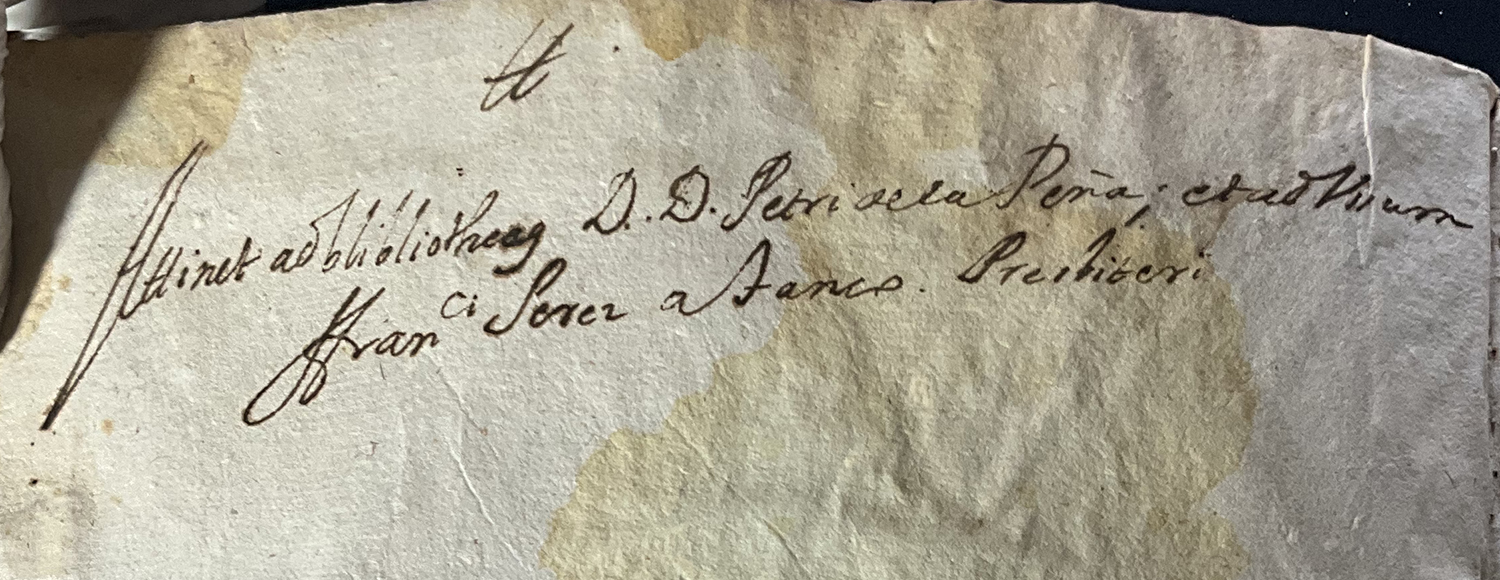 tt
Attinet ad bibliothecą D. D. Petri de la Peña; et ad Vsum
ffran^ci Perez a Junco. Presbiteri